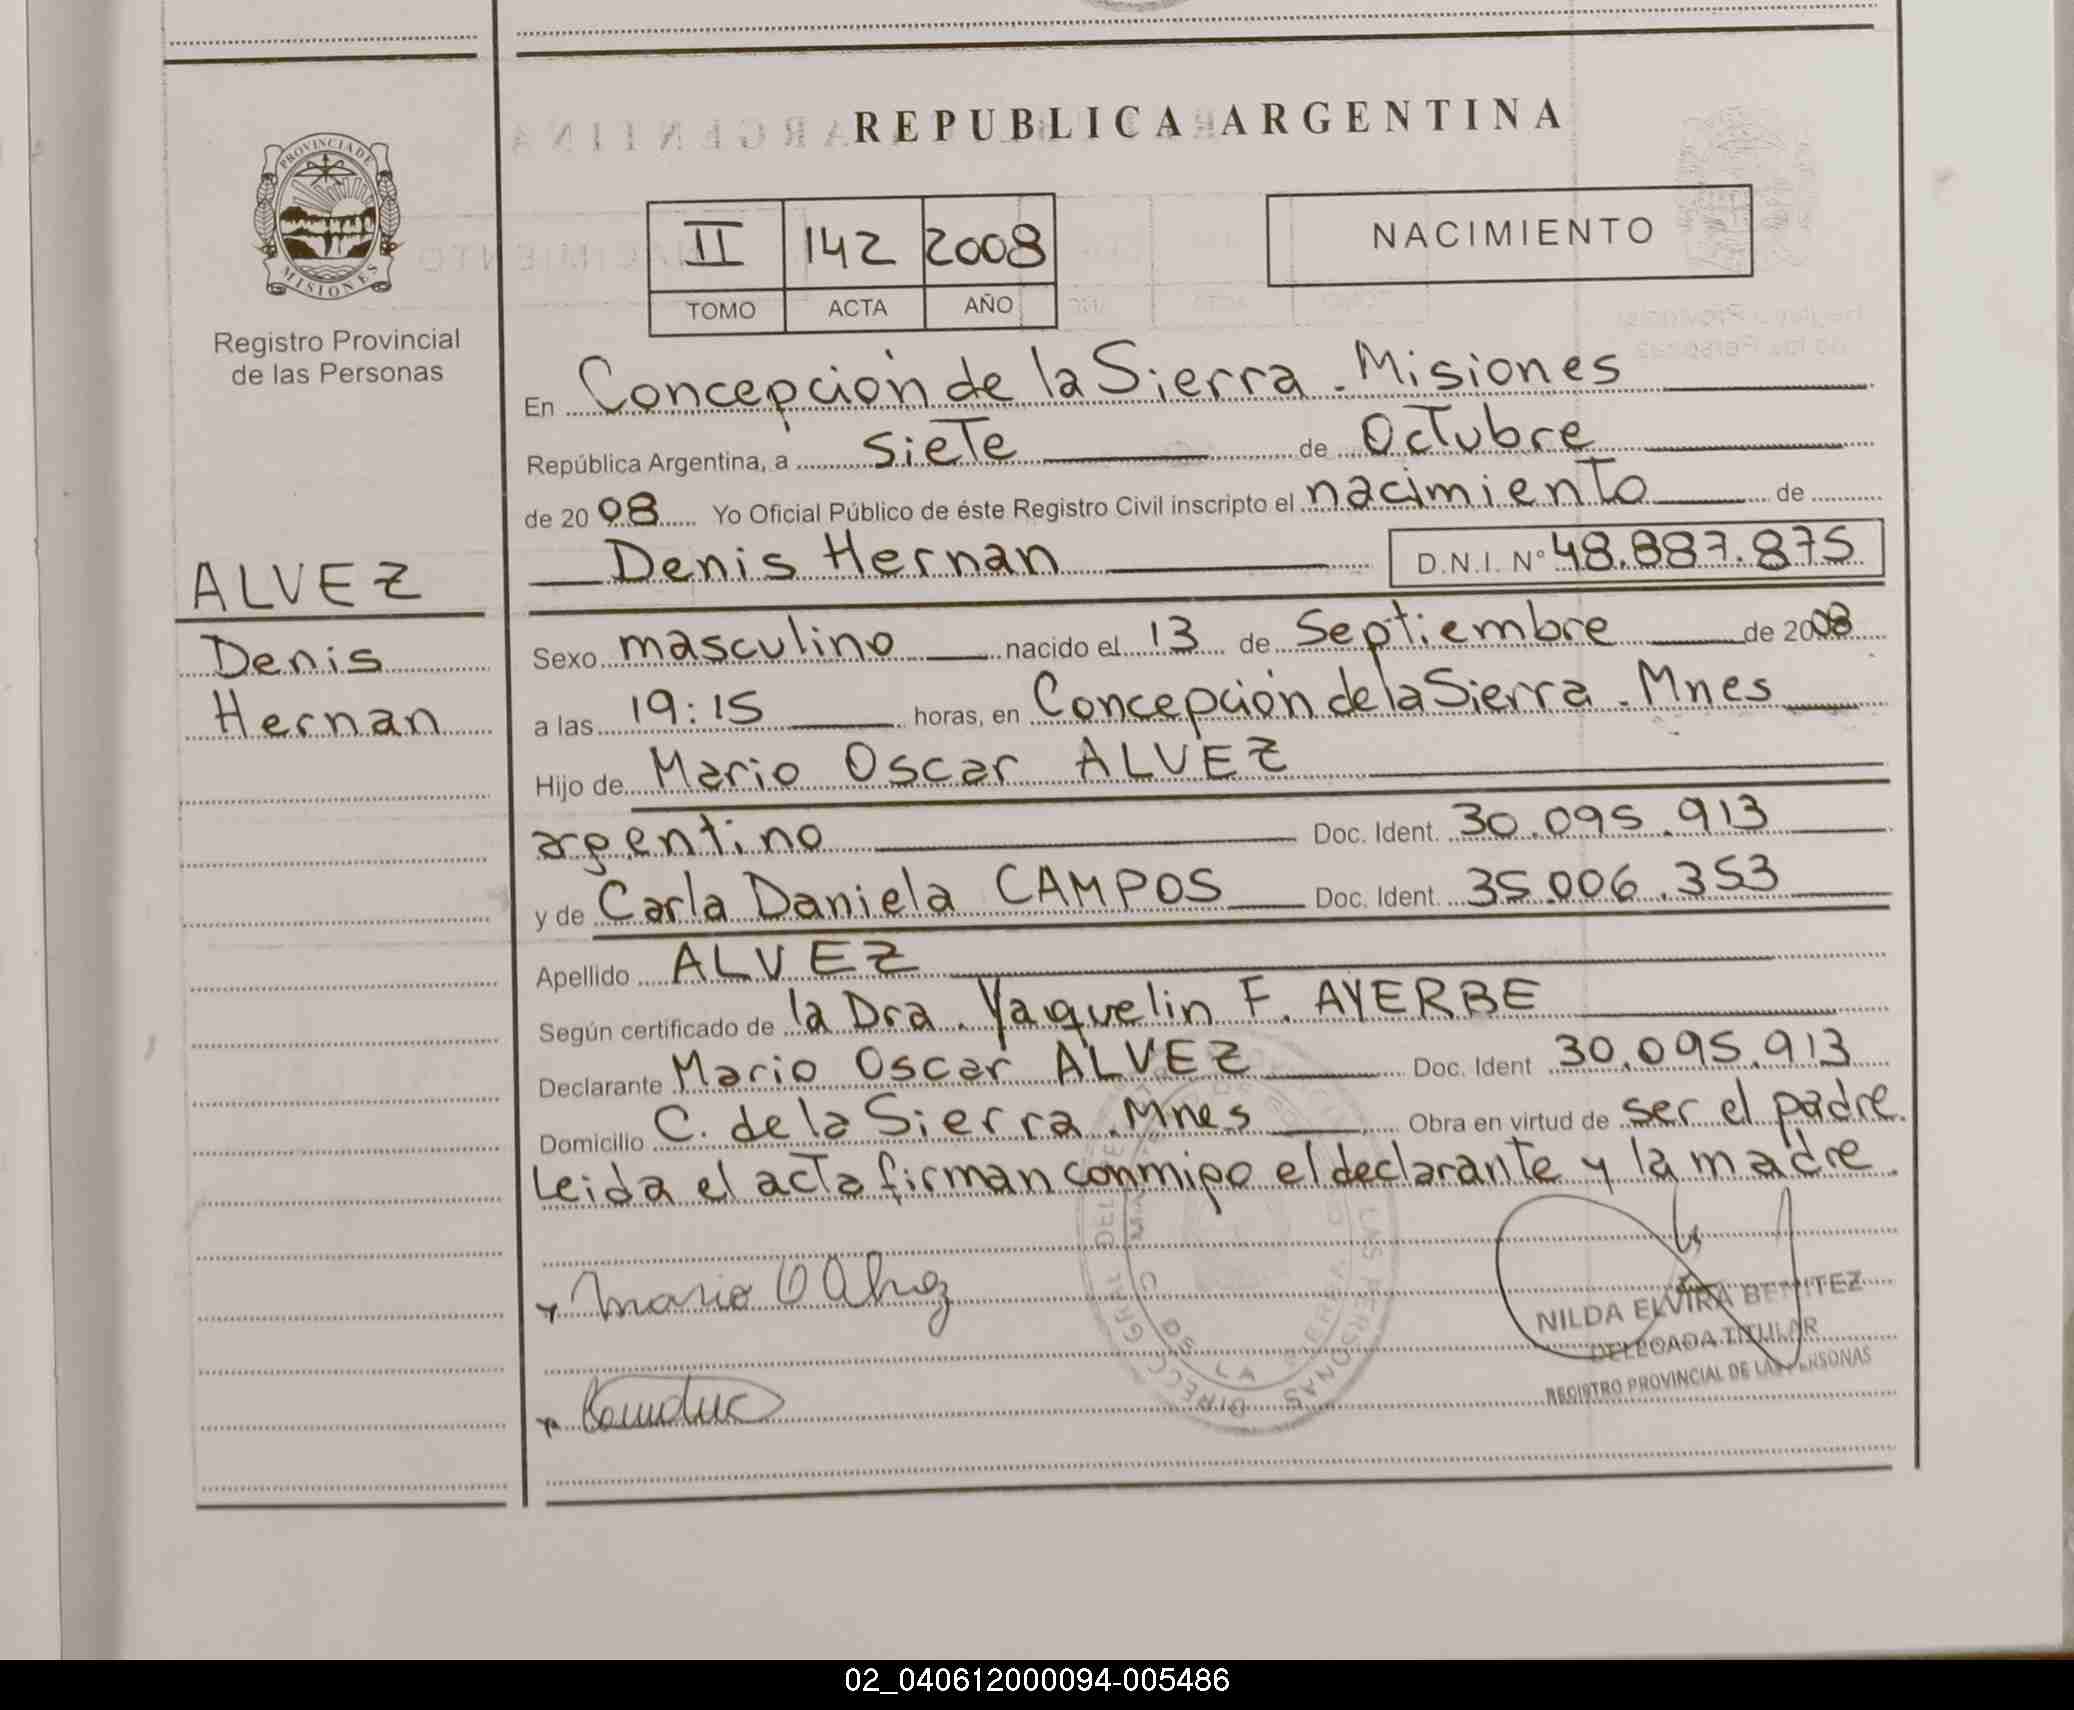 REPUBLICA ARGENTINA
PROVINCIA DE
MISIONES
Registro Provincial
de las Personas
II 142 2008
TOMO ACTA AÑO
NACIMIENTO
En Concepción de la Sierra - Misiones
República Argentina, a siete de Octubre
de 2008 Yo Oficial Público de éste Registro Civil inscripto el nacimiento de
Denis Hernan D.N.I. Nº 48.887.875
ALVEZ
Denis
Hernan
Sexo masculino nacido el 13 de Septiembre de 2008
a las 19:15 horas, en Concepción de la Sierra - Mnes
Hijo de Mario Oscar ALVEZ
argentino Doc. Ident. 30.095.913
y de Carla Daniela CAMPOS Doc. Ident. 35.006.353
Apellido ALVEZ
Según certificado de la Dra. Yaquelin F. AYERBE
Declarante Mario Oscar ALVEZ Doc. Ident 30.095.913
Domicilio C. de la Sierra - Mnes Obra en virtud de ser el padre.
Leida el acta firman conmigo el declarante y la madre.
Mario O Alvez
NILDA ELVIRA BENITEZ
DELEGADA TITULAR
REGISTRO PROVINCIAL DE LAS PERSONAS
02_040612000094-005486